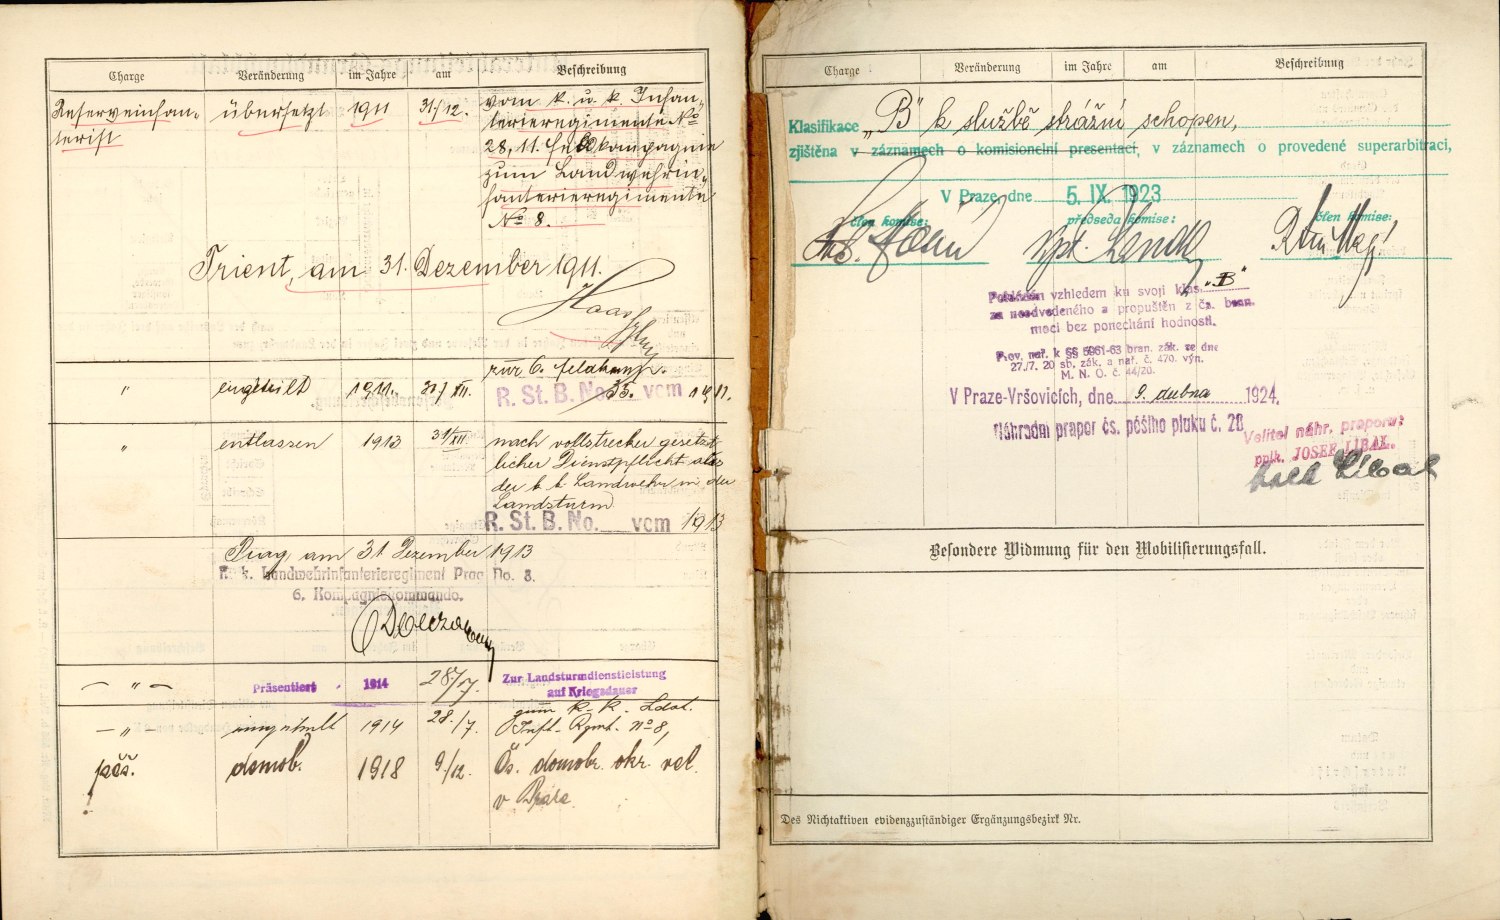 Charge Veränderung im Jahre am Beschreibung
Reserveinfan- übersetzt 1911 31/12. vom k. u. k. Infan-
terist terieregimente No
28, 11. Feldkompagnie
zum Landwehrin-
fanterieregimente
No 8.
Trient, am 31. Dezember 1911.
Haas
zur 6. Feldkomp.
" eingeteilt 1911. XII. R. St. B. No. 35. vom 1911.
" entlassen 1913 31/XII nach vollstreckter gesetz-
licher Dienstpflicht aus
der k. k. Landwehr in den
Landsturm
R. St. B. No. vom 1913
Prag, am 31. Dezember 1913
K. k. Landwehrinfanterieregiment Prag No. 8.
6. Kompagniekommando.
— " — Präsentiert 1914 28/7. Zur Landsturmdienstleistung
auf Kriegsdauer
— " eingeteilt 1914 28./7. zum k. k. Ldst.
Inft. Rgmt. No 8,
pěš. demob. 1918 9./12. Čs. domobr. okr. vel.
v Praze
Charge Veränderung im Jahre am Beschreibung
Klasifikace „B" k službě strážní schopen,
zjištěna v záznamech o komisionelní presentaci, v záznamech o provedené superarbitraci,
V Praze, dne 5. IX. 1923
člen komise: předseda komise: člen komise:
vzhledem ku svojí klas. „B"
za neodvedeného a propuštěn z čs. bran.
moci bez ponechání hodnosti.
Prov. nař. k §§ 5961-63 bran. zák. ze dne
27./7. 20 sb. zák. a nař. č. 470. výn.
M. N. O. č. 44/20.
V Praze-Vršovicích, dne 9. dubna 1924.
Náhradní prapor čs. pěšího pluku č. 28
Velitel náhr. praporu:
pplk. JOSEF LÍBAL.
Líbal
Besondere Widmung für den Mobilisierungsfall.
Des Nichtaktiven evidenzzuständiger Ergänzungsbezirk Nr.